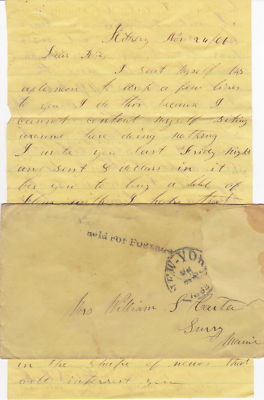 Kittery Nov 24/61
Dear
I seat myself this
afternoon to drop a few lines
to you I do this because I
cannot content myself siting
around here doing nothing
I wrote you last Friday night
and sent 8 dollars in it
for you to buy a bbl of
flour with I hope that
Held For Postage
NEW-YORK
Mrs William S Carter
Surry
Maine
in the shape of news that
will interest you